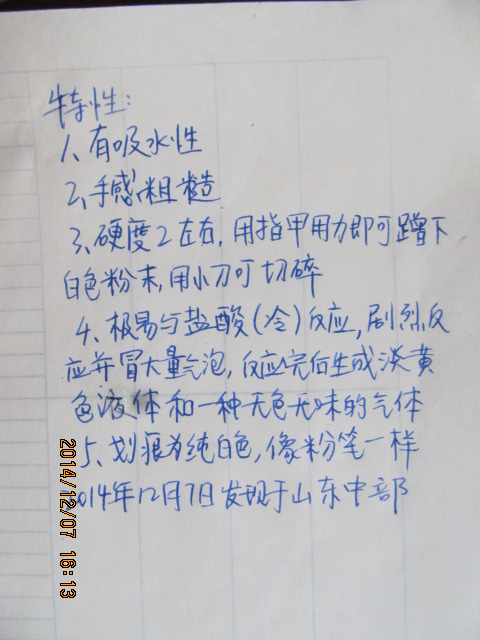 特性:
1、有吸水性
2、手感粗糙
3、硬度2左右,用指甲用力即可蹭下
白色粉末,用小刀可切碎
4、极易与盐酸(冷)反应,剧烈反
应并冒大量气泡,反应完后生成淡黄
色液体和一种无色无味的气体
5、划痕为纯白色,像粉笔一样
2014年12月7日发现于山东中部
2014/12/07 16:13